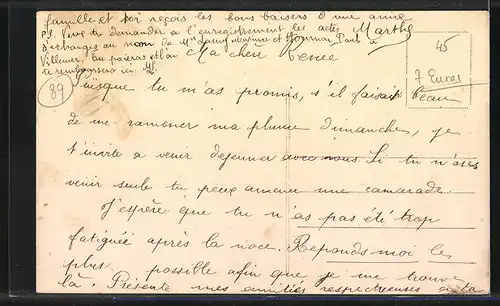 famille et toi reçois les bons baisers d'une amie
P.S. Veux tu demander a l'enregistrement les actes Marthe
d'échanges au nom de Mme et Paul a
Villemer, tu paieras et l'on
te remboursera ici
Ma chère Renée
89
45
7 Euros
Puisque tu m'as promis, s'il faisait beau
de me ramener ma plume dimanche, je
t'invite a venir dejeuner avec nous. Si tu n'oses
venir seule tu peux amener une camarade.
J'espère que tu n'as pas été trop
fatiguée après la noce. Reponds moi le
plus possible afin que je me trouve
là. Présente mes amitiés respectueuses a ta